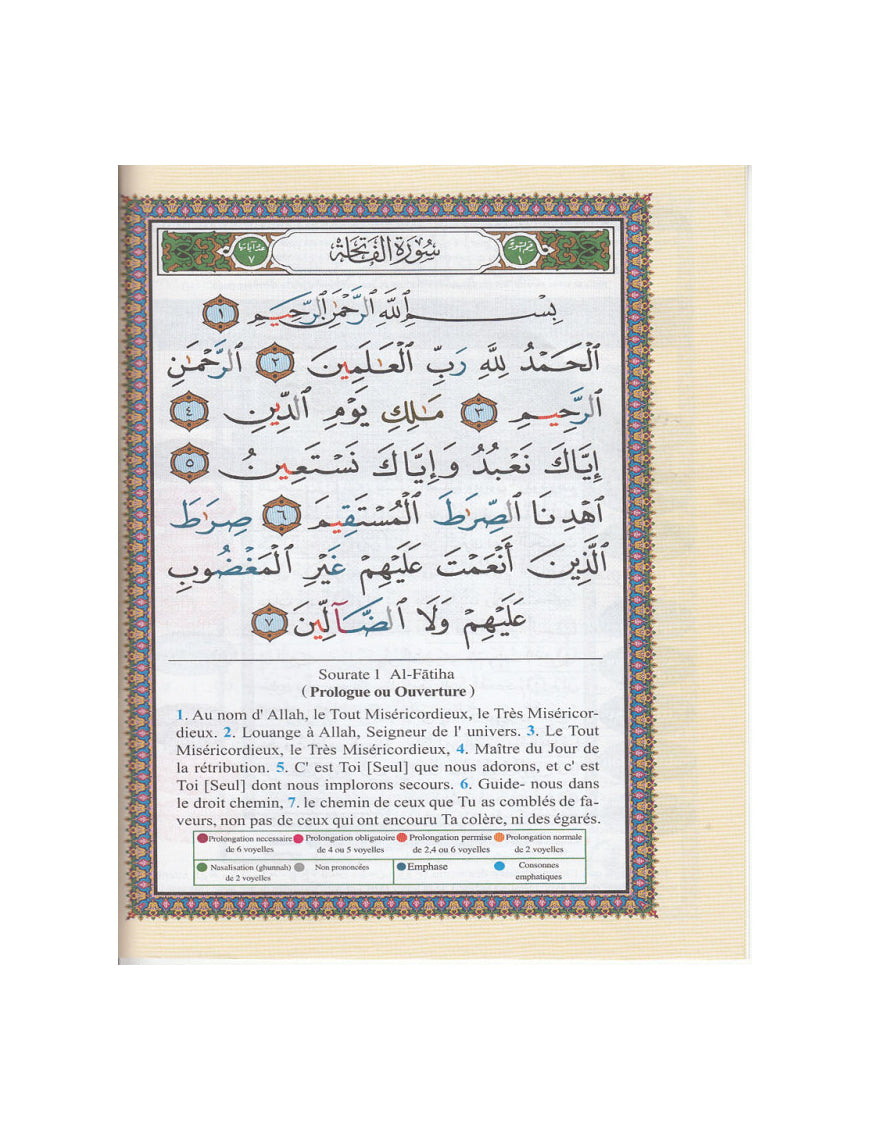 عدد آياتها ٧
سُورَةُ الفَاتِحَة
رقم السورة ١
بِسْمِ ٱللَّهِ ٱلرَّحْمَٰنِ ٱلرَّحِيمِ ١
ٱلْحَمْدُ لِلَّهِ رَبِّ ٱلْعَٰلَمِينَ ٢ ٱلرَّحْمَٰنِ
ٱلرَّحِيمِ ٣ مَٰلِكِ يَوْمِ ٱلدِّينِ ٤
إِيَّاكَ نَعْبُدُ وَإِيَّاكَ نَسْتَعِينُ ٥
ٱهْدِنَا ٱلصِّرَٰطَ ٱلْمُسْتَقِيمَ ٦ صِرَٰطَ
ٱلَّذِينَ أَنْعَمْتَ عَلَيْهِمْ غَيْرِ ٱلْمَغْضُوبِ
عَلَيْهِمْ وَلَا ٱلضَّآلِّينَ ٧
Sourate 1 Al-Fātiha
( Prologue ou Ouverture )
1. Au nom d' Allah, le Tout Miséricordieux, le Très Miséricor-
dieux. 2. Louange à Allah, Seigneur de l' univers. 3. Le Tout
Miséricordieux, le Très Miséricordieux, 4. Maître du Jour de
la rétribution. 5. C' est Toi [Seul] que nous adorons, et c' est
Toi [Seul] dont nous implorons secours. 6. Guide- nous dans
le droit chemin, 7. le chemin de ceux que Tu as comblés de fa-
veurs, non pas de ceux qui ont encouru Ta colère, ni des égarés.
Prolongation necessaire Prolongation obligatoire Prolongation permise Prolongation normale
de 6 voyelles de 4 ou 5 voyelles de 2,4 ou 6 voyelles de 2 voyelles
Nasalisation (ghunnah) Non prononcées Emphase Consonnes
de 2 voyelles emphatiques